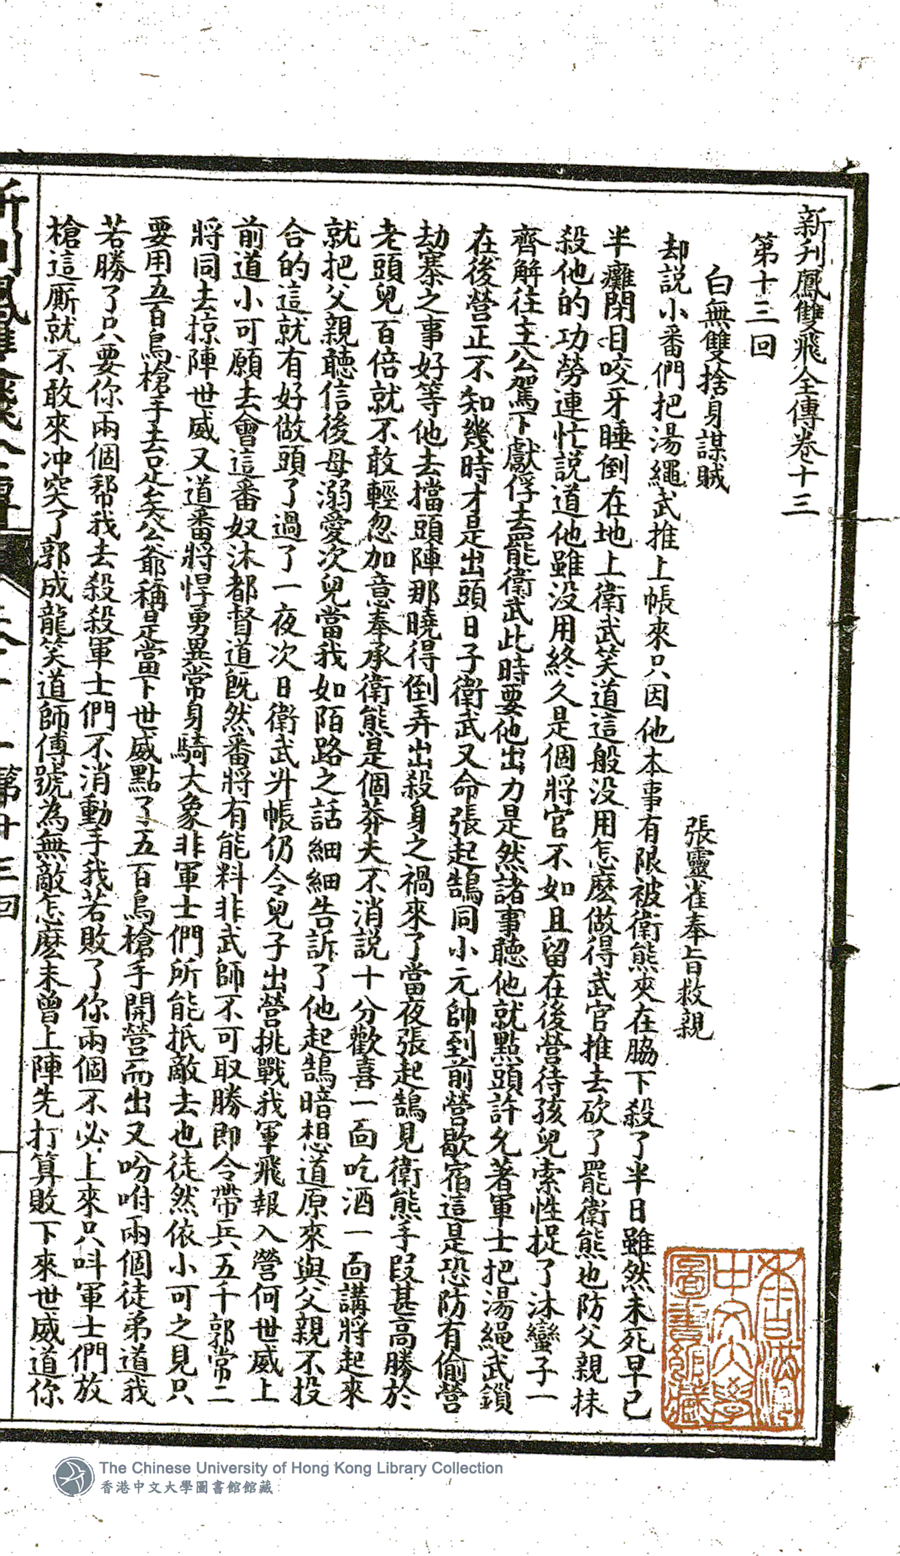 新刋鳳雙飛全傳卷十三
第十三回
白無雙捨身謀賊　張靈雀奉旨救親
却説小番們把湯繩武推上帳來只因他本事有限被衛熊夾在脇下殺了半日雖然未死早已
半癱閉目咬牙睡倒在地上衛武笑道這般没用怎麽做得武官推去砍了罷衛熊也防父親抹
殺他的功勞連忙説道他雖没用終久是個將官不如且留在後營待孩兒索性捉了沐蠻子一
齊解往主公駕下獻俘去罷衛武此時要他出力是然諸事聽他就點頭許允著軍士把湯繩武鎖
在後營正不知幾時才是出頭日子衛武又命張起鵠同小元帥到前營歇宿這是恐防有偷營
劫寨之事好等他去擋頭陣那曉得倒弄出殺身之禍來了當夜張起鵠見衛熊手段甚高勝於
老頭兒百倍就不敢輕忽加意奉承衛熊是個莽夫不消説十分歡喜一面吃酒一面講將起來
就把父親聽信後母溺愛次兒當我如陌路之話細細告訴了他起鵠暗想道原來與父親不投
合的這就有好做頭了過了一夜次日衛武升帳仍令兒子出營挑戰我軍飛報入營何世威上
前道小可願去會這番奴沐都督道既然番將有能料非武師不可取勝即令帶兵五千郭常二
將同去掠陣世威又道番將悍勇異常身騎大象非軍士們所能抵敵去也徒然依小可之見只
要用五百鳥槍手去足矣公爺稱是當下世威點了五百鳥槍手開營而出又吩咐兩個徒弟道我
若勝了只要你兩個帮我去殺殺軍士們不消動手我若敗了你兩個不必上來只呌軍士們放
槍這厮就不敢來冲突了郭成龍笑道師傅號為無敵怎麽未曾上陣先打算敗下來世威道你
新刋鳳雙飛全傳　卷十三　第十三回
香港中文大學圖書館藏
The Chinese University of Hong Kong Library Collection
香港中文大學圖書館館藏